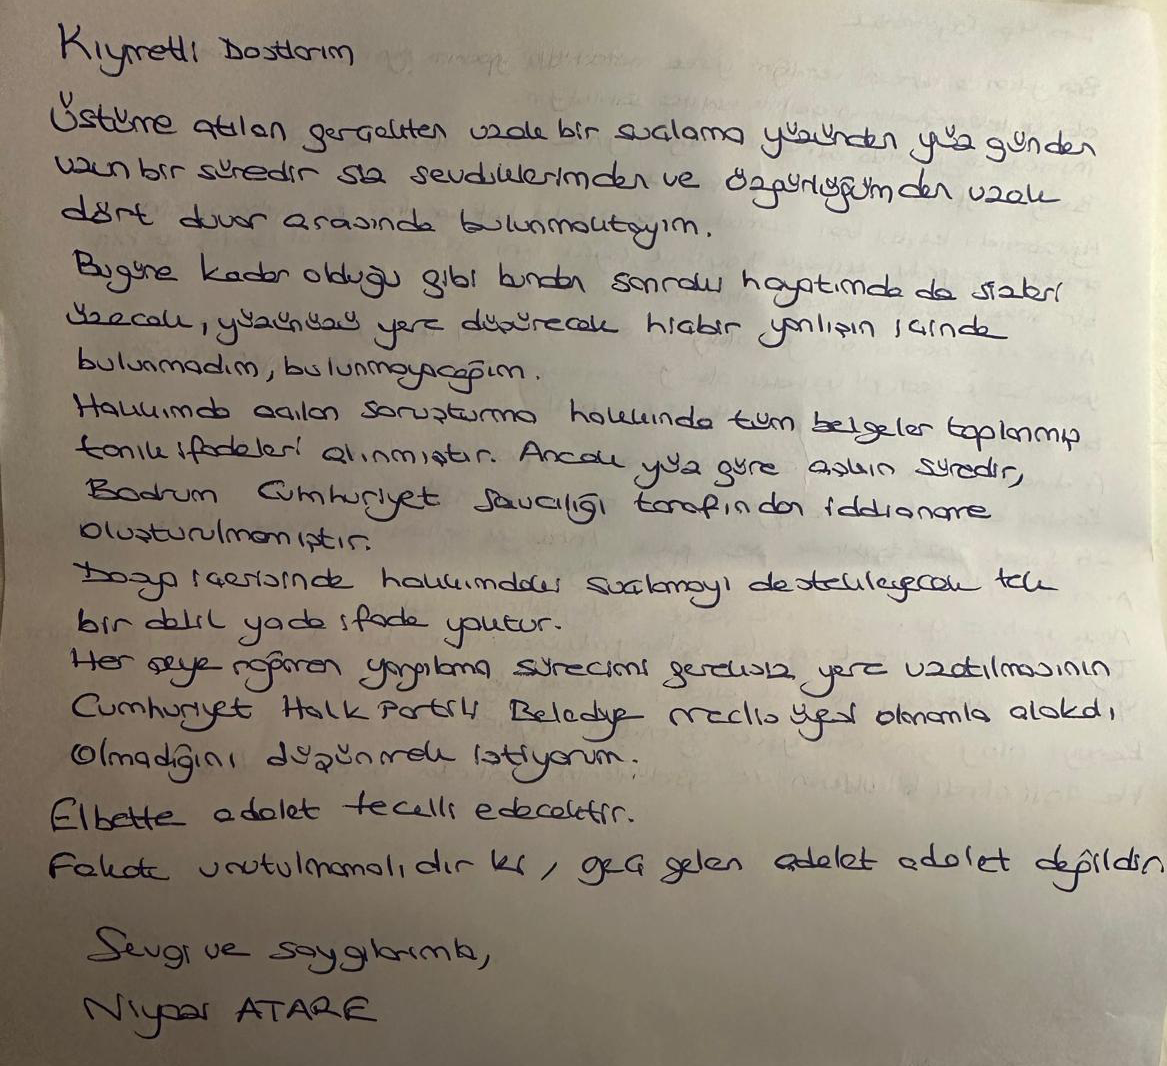 Kıymetli Dostlarım
Üstüme atılan gerçekten uzak bir suçlama yüzünden yüz günden
uzun bir süredir siz sevdiklerimden ve özgürlüğümden uzak
dört duvar arasında bulunmaktayım.
Bugüne kadar olduğu gibi bundan sonraki hayatımda da sizleri
üzecek, yüzünüzü yere düşürecek hiçbir yanlışın içinde
bulunmadım, bulunmayacağım.
Hakkımda açılan soruşturma hakkında tüm belgeler toplanmış
tanık ifadeleri alınmıştır. Ancak yüz güne aşkın süredir,
Bodrum Cumhuriyet Savcılığı tarafından iddianame
oluşturulmamıştır.
Dosya içerisinde hakkımdaki suçlamayı destekleyecek tek
bir delil yada ifade yoktur.
Her şeye rağmen yargılama sürecimi gereksiz yere uzatılmasının
Cumhuriyet Halk Partili Belediye meclis üyesi olmamla alakalı
olmadığını düşünmek istiyorum.
Elbette adalet tecelli edecektir.
Fakat unutulmamalıdır ki, geç gelen adalet adalet değildir
Sevgi ve saygılarımla,
Niyazi ATARE